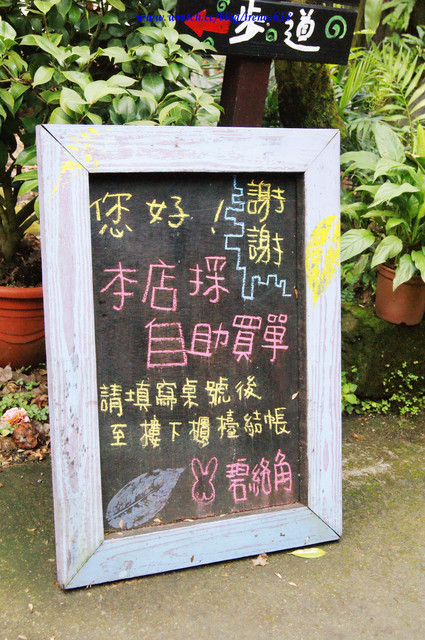 步道
您好！
謝謝
本店採
自助買單
請填寫桌號後
至樓下櫃檯結帳
碧絡角